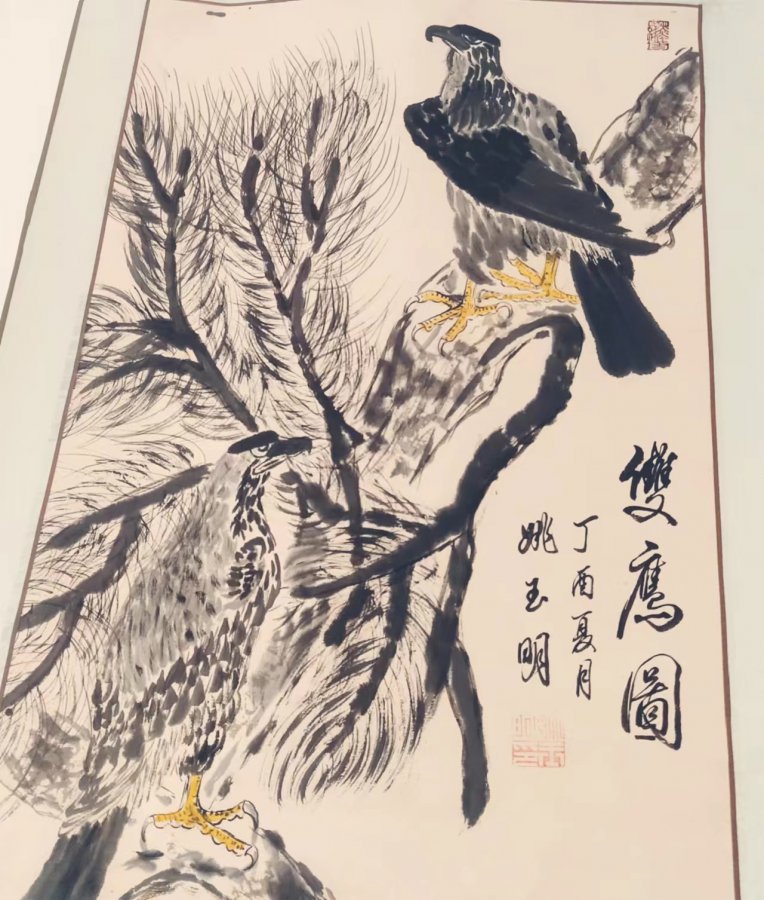 雙鷹圖
丁酉夏月
姚玉明